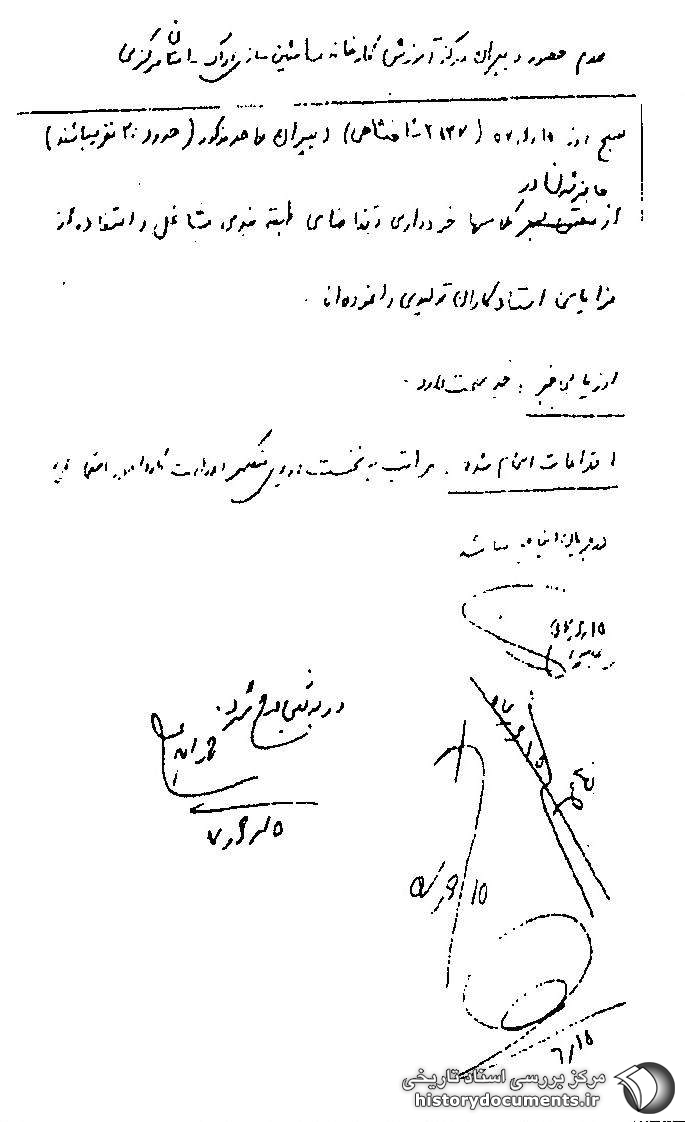 عدم حضور دبیران مرکز آموزش کارخانه ماشین سازی اراک - استان مرکزی
صبح روز ۱۵/۶/۵۷ (۲۵۳۷ شاهنشاهی) دبیران واحد مذکور (حدود ۲۰ نفر میباشند)
حاضر شدن در
از کلاسها خودداری و تقاضای طبقه بندی مشاغل و استفاده از
مزایای استادکاران تولیدی را نموده‌اند.
ارزیابی خبر: خبر صحت دارد.
اقدامات انجام شده: مراتب به نخست وزیری وزارت کار و امور اجتماعی
میباشد
۱۵/۶
در بولتن درج شود.
۱۵/۶/۵۷
۱۵/۶
۱۵/۶
مرکز بررسی اسناد تاریخی
historydocuments.ir